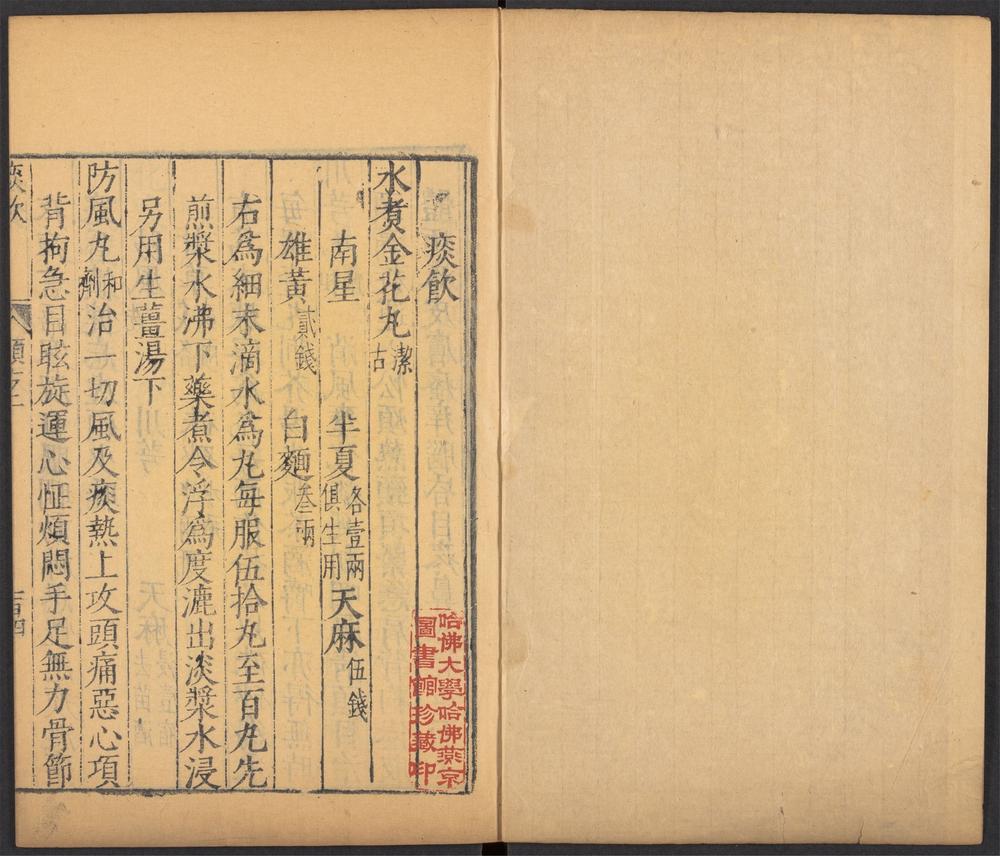 痰飲
水煮金花丸潔古
南星 半夏各壹兩俱生用 天麻伍錢
雄黃貳錢 白麵叁兩
右爲細末滴水爲丸每服伍拾丸至百丸先
煎漿水沸下藥煮令浮爲度漉出淡漿水浸
另用生薑湯下
防風丸和劑治一切風及痰熱上攻頭痛惡心項
背拘急目眩旋運心怔煩悶手足無力骨節
哈佛大學哈佛燕京
圖書館珍藏印